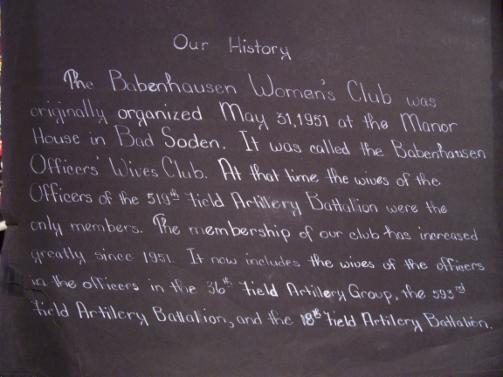 Our History
The Babenhausen Women's Club was
originally organized May 31, 1951 at the Manor
House in Bad Soden. It was called the Babenhausen
Officers' Wives Club. At that time the wives of the
Officers of the 519th Field Artillery Battalion were the
only members. The membership of our club has increased
greatly since 1951. It now includes the wives of the officers
in the officers in the 36th Field Artillery Group, the 593rd
Field Artillery Battalion, and the 18th Field Artillery Battalion.